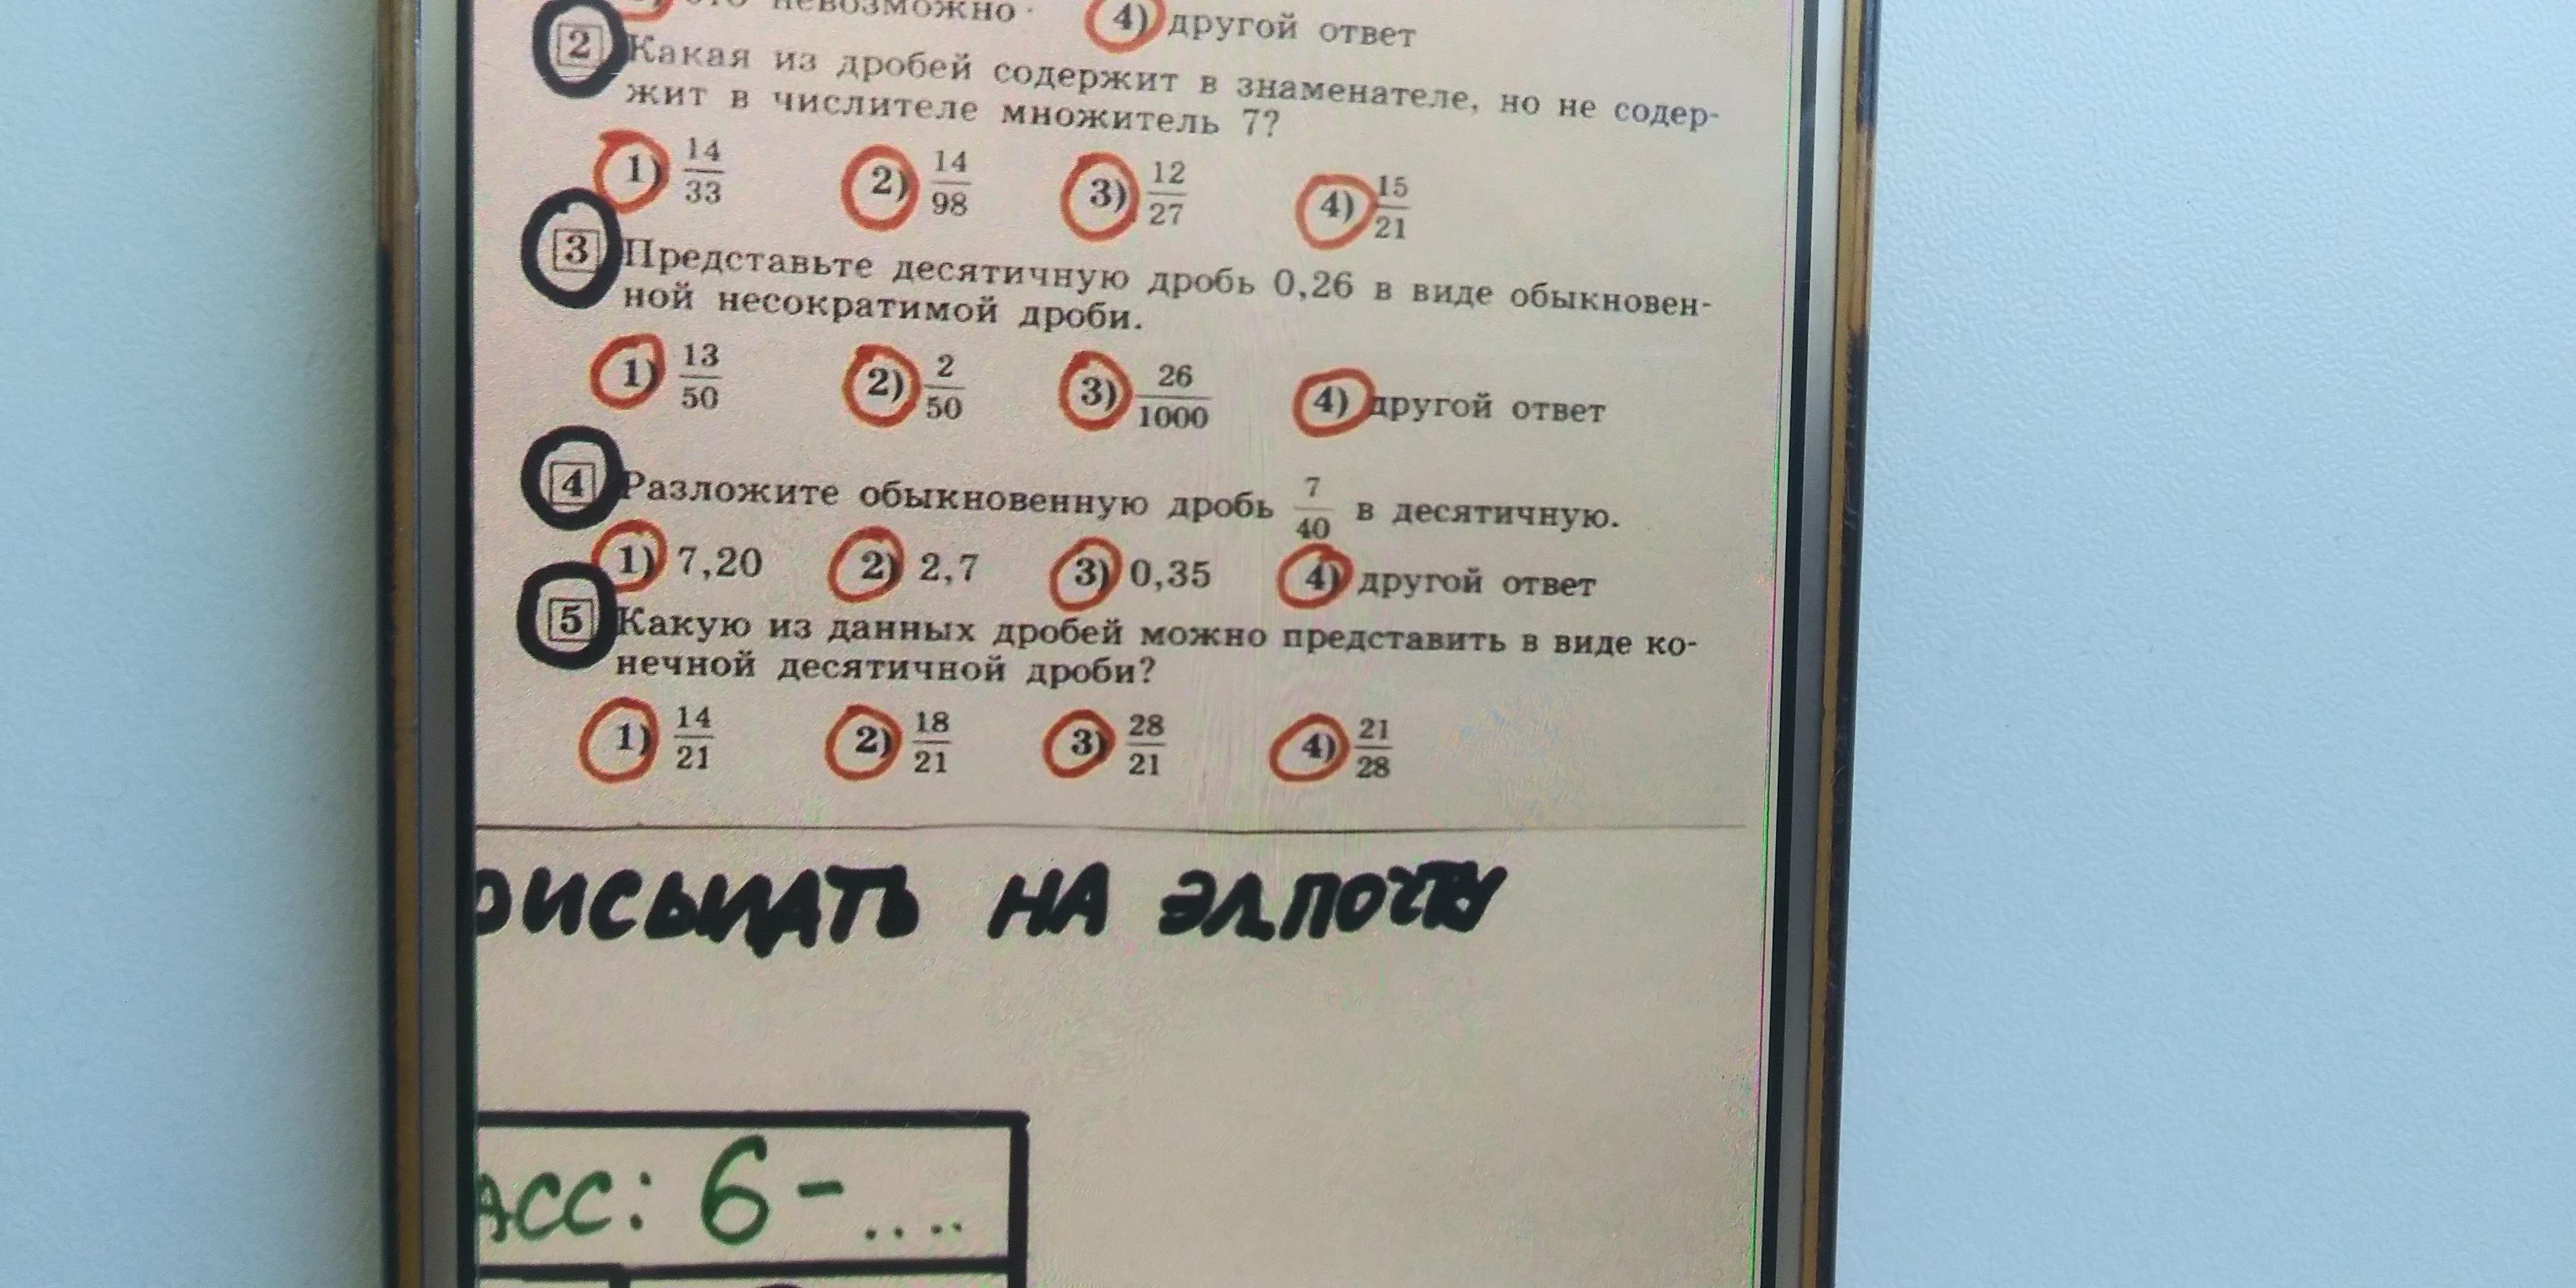 это невозможно 4) другой ответ
2 Какая из дробей содержит в знаменателе, но не содер-
жит в числителе множитель 7?
1) 14/33 2) 14/98 3) 12/27 4) 15/21
3 Представьте десятичную дробь 0,26 в виде обыкновен-
ной несократимой дроби.
1) 13/50 2) 2/50 3) 26/1000 4) другой ответ
4 Разложите обыкновенную дробь 7/40 в десятичную.
1) 7,20 2) 2,7 3) 0,35 4) другой ответ
5 Какую из данных дробей можно представить в виде ко-
нечной десятичной дроби?
1) 14/21 2) 18/21 3) 28/21 4) 21/28
РИСЫЛАТЬ НА ЭЛ.ПОЧТУ
АСС: 6-....